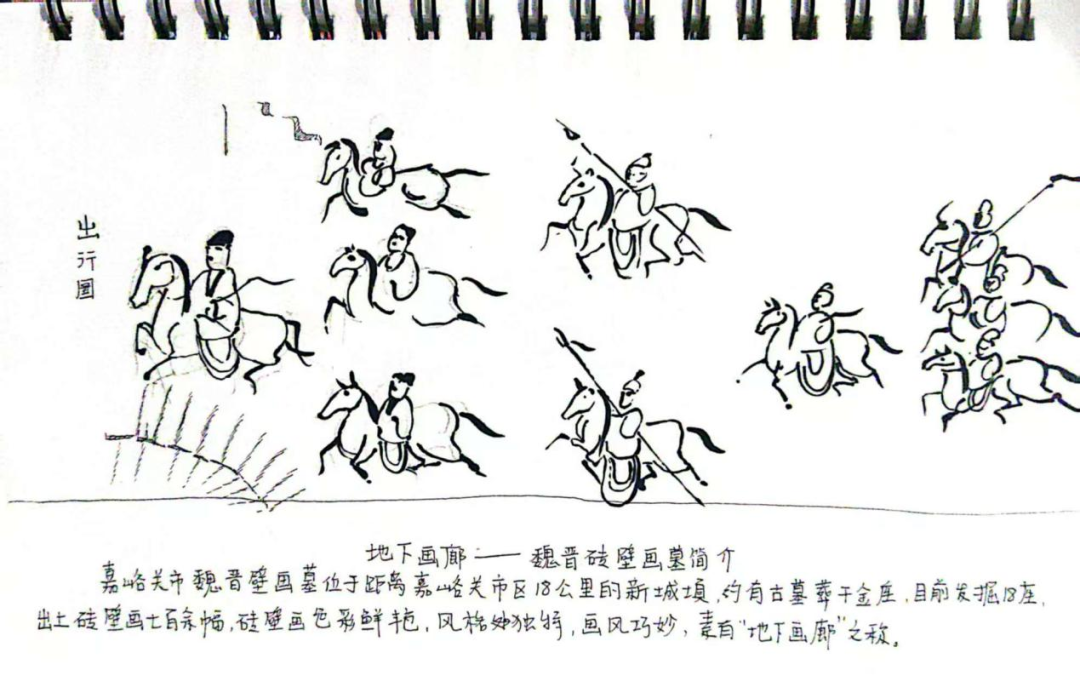 出行圖
地下画廊：—— 魏晋砖壁画墓简介
嘉峪关市魏晋壁画墓位于距离嘉峪关市区18公里的新城，约有古墓葬千座，目前发掘18座，
出土砖壁画百余幅，砖壁画色彩鲜艳，风格独特，画风巧妙，素有“地下画廊”之称。